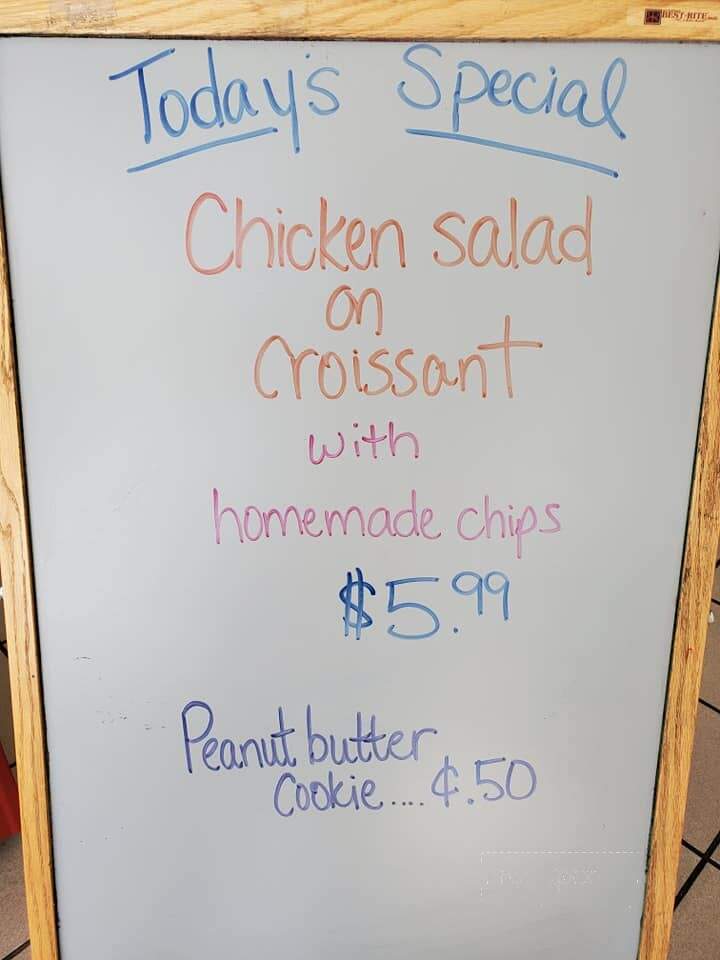 BEST-RITE
Today's Special
Chicken salad
on
Croissant
with
homemade chips
$5.99
Peanut butter
Cookie....¢.50